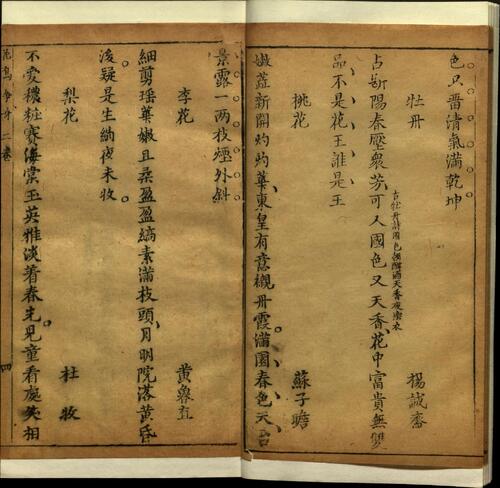 色只普清氣滿乾坤
牡丹 楊誠齋
占斷陽春壓衆芳可人國色又天香花中富貴無雙
品不是花王誰是王
桃花 蘇子瞻
嫩蓋新開灼灼華東皇有意襯丹霞滿園春色天台
景露一兩枝煙外斜
李花 黄魯直
細剪瑶華嫩且柔盈盈縞素滿枝頭月明院落黄昏
後疑是生綃夜未收
梨花 杜牧
不愛穠粧賽海棠玉英雅淡着春先兒童看處失相
花鳥争奇二卷 四